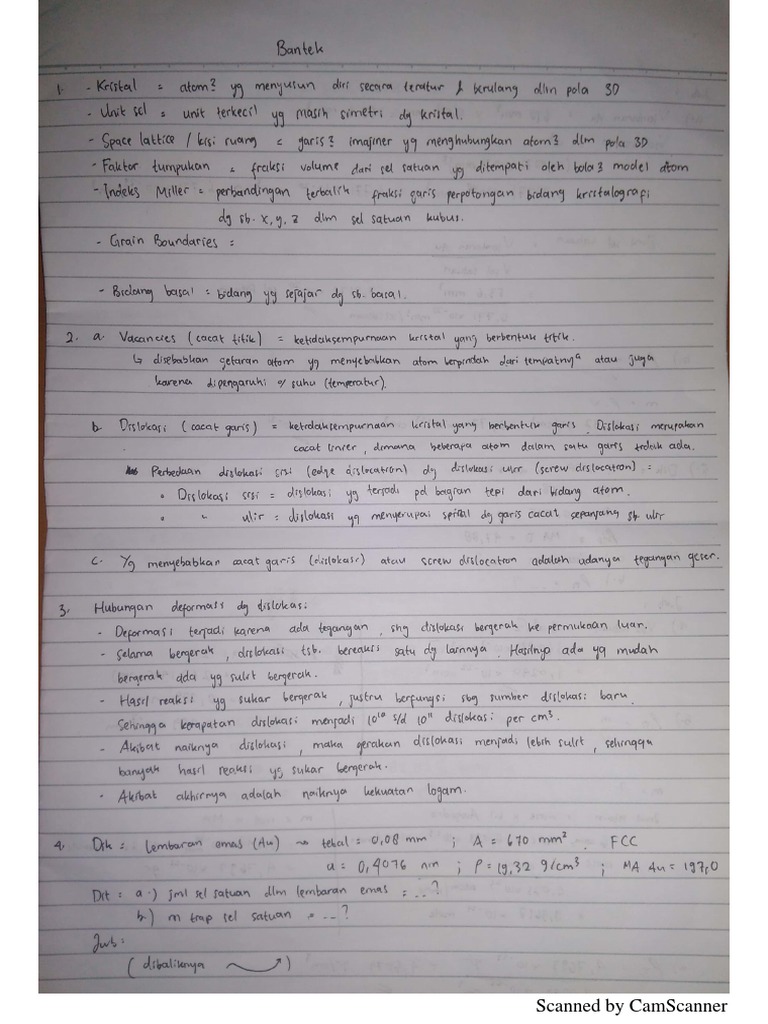 Bantek
1. - Kristal = atom² yg menyusun diri secara teratur & berulang dlm pola 3D
- Unit sel = unit terkecil yg masih simetri dg kristal.
- Space lattice / kisi ruang = garis² imajiner yg menghubungkan atom² dlm pola 3D
- Faktor tumpukan = fraksi volume dari sel satuan yg ditempati oleh bola² model atom
- Indeks Miller = perbandingan terbalik fraksi garis perpotongan bidang kristalografi
dg sb. x, y, z dlm sel satuan kubus.
- Grain Boundaries =
- Bidang basal = bidang yg sejajar dg sb. basal.
2. a. Vacancies (cacat titik) = ketidaksempurnaan kristal yang berbentuk titik.
↳ disebabkan getaran atom yg menyebabkan atom berpindah dari tempatnya atau juga
karena dipengaruhi o/ suhu (temperatur).
b. Dislokasi (cacat garis) = ketidaksempurnaan kristal yang berbentuk garis. Dislokasi merupakan
cacat linier, dimana beberapa atom dalam satu garis tidak ada.
Perbedaan dislokasi sisi (edge dislocation) dg dislokasi ulir (screw dislocation) =
• Dislokasi sisi = dislokasi yg terjadi pd bagian tepi dari bidang atom.
• " ulir = dislokasi yg menyerupai spiral dg garis cacat sepanjang sb. ulir
c. Yg menyebabkan cacat garis (dislokasi) atau screw dislocation adalah adanya tegangan geser.
3. Hubungan deformasi dg dislokasi:
- Deformasi terjadi karena ada tegangan, shg dislokasi bergerak ke permukaan luar.
- Selama bergerak, dislokasi tsb. bereaksi satu dg lainnya. Hasilnya ada yg mudah
bergerak ada yg sulit bergerak.
- Hasil reaksi yg sukar bergerak, justru berfungsi sbg sumber dislokasi baru.
Sehingga kerapatan dislokasi menjadi 10¹⁰ s/d 10¹¹ dislokasi per cm³.
- Akibat naiknya dislokasi, maka gerakan dislokasi menjadi lebih sulit, sehingga
banyak hasil reaksi yg sukar bergerak.
- Akibat akhirnya adalah naiknya kekuatan logam.
4. Dik = Lembaran emas (Au) → tebal = 0,08 mm ; A = 670 mm² . FCC
a = 0,4076 nm ; ρ = 19,32 g/cm³ ; MA Au = 197,0
Dit = a.) jml sel satuan dlm lembaran emas = ...?
b.) m tiap sel satuan = ...?
Jwb:
(dibaliknya →)
Scanned by CamScanner